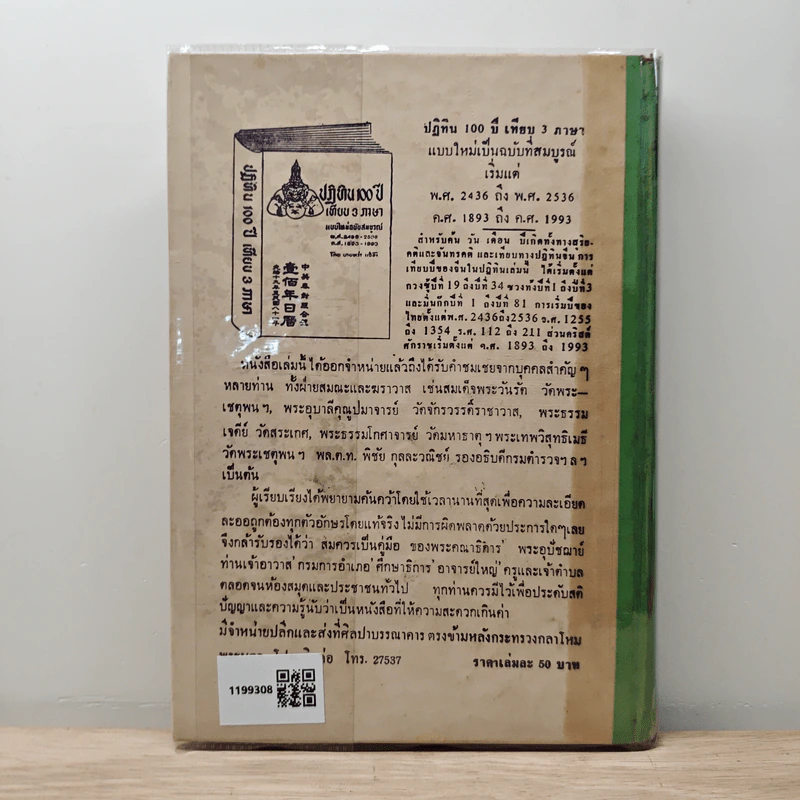 ปฏิทิน 100 ปี เทียบ 3 ภาษา
แบบใหม่เป็นฉบับที่สมบูรณ์
เริ่มแต่
พ.ศ. 2436 ถึง พ.ศ. 2536
ค.ศ. 1893 ถึง ค.ศ. 1993
สำหรับค้น วัน เดือน ปีเกิดทั้งทางสุริย-
คติและจันทรคติ และเทียบทางปฏิทินจีน การ
เทียบปีของจีนในปฏิทินเล่มนี้ ได้เริ่มตั้งแต่
กวงซูปีที่ 19 ถึงปีที่ 34 ซวงท้งปีที่ 1 ถึงปีที่ 3
และมิ่นก๊กปีที่ 1 ถึงปีที่ 81 การเริ่มปีของ
ไทยตั้งแต่พ.ศ. 2436ถึง2536 จ.ศ. 1255
ถึง 1354 ร.ศ. 112 ถึง 211 ส่วนคริสต์
ศักราชเริ่มตั้งแต่ ค.ศ. 1893 ถึง 1993
ปฏิทิน 100 ปี เทียบ 3 ภาษา
ปฏิทิน 100 ปี
เทียบ 3 ภาษา
แบบใหม่ฉบับสมบูรณ์
พ.ศ. 2436 - 2536
ค.ศ. 1893 - 1993
壹佰年日曆
หนังสือเล่มนี้ ได้ออกจำหน่ายแล้วถึงได้รับคำชมเชยจากบุคคลสำคัญ ๆ
หลายท่าน ทั้งฝ่ายสมณะและฆราวาส เช่นสมเด็จพระวันรัต วัดพระ—
เชตุพน ฯ, พระอุบาลีคุณูปมาจารย์ วัดจักรวรรดิ์ราชาวาส, พระธรรม
เจดีย์ วัดสระเกศ, พระธรรมโกศาจารย์ วัดมหาธาตุ ฯ พระเทพวิสุทธิเมธี
วัดพระเชตุพน ฯ พล.ต.ท. พิชัย กุลละวณิชย์ รองอธิบดีกรมตำรวจ ฯ ล ฯ
เป็นต้น
ผู้เรียบเรียงได้พยายามค้นคว้าโดยใช้เวลานานที่สุดเพื่อความละเอียด
ละออถูกต้องทุกตัวอักษรโดยแท้จริง ไม่มีการผิดพลาดด้วยประการใดๆเลย
จึงกล้ารับรองได้ว่า สมควรเป็นคู่มือ ของพระคณาธิการ พระอุปัชฌาย์
ท่านเจ้าอาวาส กรมการอำเภอ ศึกษาธิการ อาจารย์ใหญ่ ครูและเจ้าตำบล
ตลอดจนห้องสมุดและประชาชนทั่วไป ทุกท่านควรมีไว้เพื่อประดับสติ
ปัญญาและความรู้นับว่าเป็นหนังสือที่ให้ความสะดวกเกินค่า
มีจำหน่ายปลีกและส่งที่ศิลปาบรรณาคาร ตรงข้ามหลังกระทรวงกลาโหม
โทร. 27537 ราคาเล่มละ 50 บาท
1199308